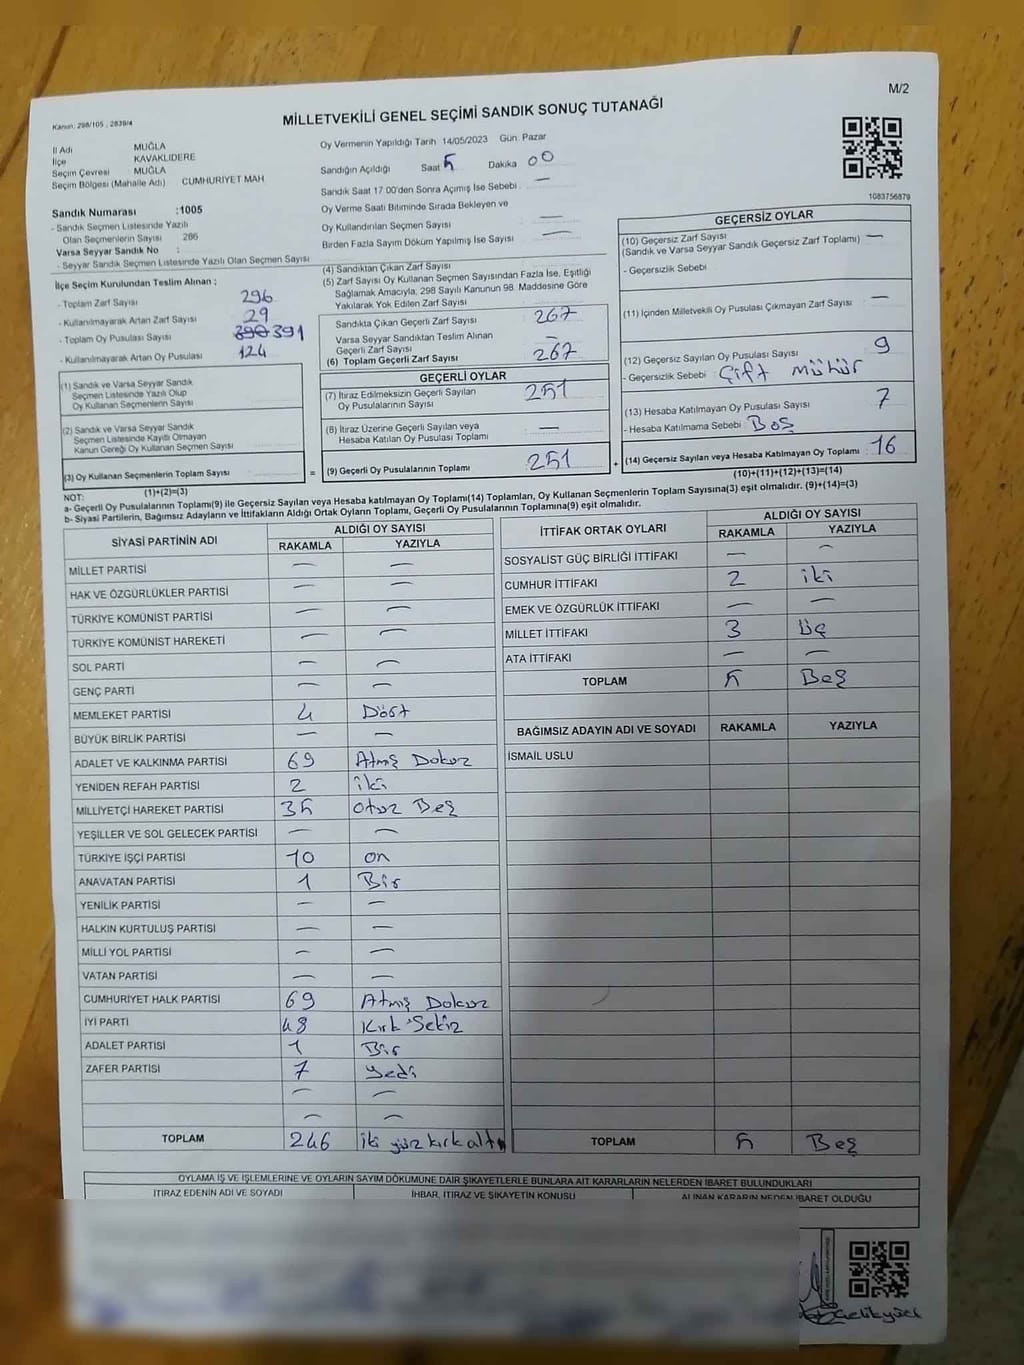 M/2
Kanun: 298/105 , 2839/4
MİLLETVEKİLİ GENEL SEÇİMİ SANDIK SONUÇ TUTANAĞI
İl Adı MUĞLA
İlçe KAVAKLIDERE
Seçim Çevresi MUĞLA
Seçim Bölgesi (Mahalle Adı) CUMHURİYET MAH
Sandık Numarası :1005
- Sandık Seçmen Listesinde Yazılı
Olan Seçmenlerin Sayısı 286
Varsa Seyyar Sandık No :
- Seyyar Sandık Seçmen Listesinde Yazılı Olan Seçmen Sayısı
Oy Vermenin Yapıldığı Tarih 14/05/2023 Gün: Pazar
Sandığın Açıldığı Saat 5 Dakika 00
Sandık Saat 17.00'den Sonra Açımış İse Sebebi : —
Oy Verme Saati Bitiminde Sırada Bekleyen ve
Oy Kullandırılan Seçmen Sayısı —
Birden Fazla Sayım Döküm Yapılmış İse Sayısı —
1083756879
İlçe Seçim Kurulundan Teslim Alınan ;
- Toplam Zarf Sayısı 296
- Kullanılmayarak Artan Zarf Sayısı 29
- Toplam Oy Pusulası Sayısı 390 391
- Kullanılmayarak Artan Oy Pusulası 124
(1) Sandık ve Varsa Seyyar Sandık
Seçmen Listesinde Yazılı Olup
Oy Kullanan Seçmenlerin Sayısı
(2) Sandık ve Varsa Seyyar Sandık
Seçmen Listesinde Kayıtlı Olmayan
Kanun Gereği Oy Kullanan Seçmen Sayısı
(3) Oy Kullanan Seçmenlerin Toplam Sayısı
(1)+(2)=(3)
(4) Sandıktan Çıkan Zarf Sayısı
(5) Zarf Sayısı Oy Kullanan Seçmen Sayısından Fazla İse, Eşitliği
Sağlamak Amacıyla, 298 Sayılı Kanunun 98. Maddesine Göre
Yakılarak Yok Edilen Zarf Sayısı
Sandıkta Çıkan Geçerli Zarf Sayısı 267
Varsa Seyyar Sandıktan Teslim Alınan
Geçerli Zarf Sayısı —
(6) Toplam Geçerli Zarf Sayısı 267
GEÇERLİ OYLAR
(7) İtiraz Edilmeksizin Geçerli Sayılan
Oy Pusulalarının Sayısı 251
(8) İtiraz Üzerine Geçerli Sayılan veya
Hesaba Katılan Oy Pusulası Toplamı —
= (9) Geçerli Oy Pusulalarının Toplamı 251 +
GEÇERSİZ OYLAR
(10) Geçersiz Zarf Sayısı —
(Sandık ve Varsa Seyyar Sandık Geçersiz Zarf Toplamı)
- Geçersizlik Sebebi
(11) İçinden Milletvekili Oy Pusulası Çıkmayan Zarf Sayısı —
(12) Geçersiz Sayılan Oy Pusulası Sayısı 9
- Geçersizlik Sebebi Çift Mühür
(13) Hesaba Katılmayan Oy Pusulası Sayısı 7
- Hesaba Katılmama Sebebi Boş
(14) Geçersiz Sayılan veya Hesaba Katılmayan Oy Toplamı 16
(10)+(11)+(12)+(13)=(14)
NOT:
a- Geçerli Oy Pusulalarının Toplamı(9) ile Geçersiz Sayılan veya Hesaba katılmayan Oy Toplamı(14) Toplamları, Oy Kullanan Seçmenlerin Toplam Sayısına(3) eşit olmalıdır. (9)+(14)=(3)
b- Siyasi Partilerin, Bağımsız Adayların ve İttifakların Aldığı Ortak Oyların Toplamı, Geçerli Oy Pusulalarının Toplamına(9) eşit olmalıdır.
SİYASİ PARTİNİN ADI ALDIĞI OY SAYISI
RAKAMLA YAZIYLA
MİLLET PARTİSİ — —
HAK VE ÖZGÜRLÜKLER PARTİSİ — —
TÜRKİYE KOMÜNİST PARTİSİ — —
TÜRKİYE KOMÜNİST HAREKETİ — —
SOL PARTİ — —
GENÇ PARTİ — —
MEMLEKET PARTİSİ 4 Dört
BÜYÜK BİRLİK PARTİSİ — —
ADALET VE KALKINMA PARTİSİ 69 Atmış Dokuz
YENİDEN REFAH PARTİSİ 2 iki
MİLLİYETÇİ HAREKET PARTİSİ 35 Otuz Beş
YEŞİLLER VE SOL GELECEK PARTİSİ — —
TÜRKİYE İŞÇİ PARTİSİ 10 on
ANAVATAN PARTİSİ 1 Bir
YENİLİK PARTİSİ — —
HALKIN KURTULUŞ PARTİSİ — —
MİLLİ YOL PARTİSİ — —
VATAN PARTİSİ — —
CUMHURİYET HALK PARTİSİ 69 Atmış Dokuz
İYİ PARTİ 48 Kırk Sekiz
ADALET PARTİSİ 1 Bir
ZAFER PARTİSİ 7 Yedi
— —
— —
TOPLAM 246 iki yüz kırk altı
İTTİFAK ORTAK OYLARI ALDIĞI OY SAYISI
RAKAMLA YAZIYLA
SOSYALİST GÜÇ BİRLİĞİ İTTİFAKI — —
CUMHUR İTTİFAKI 2 iki
EMEK VE ÖZGÜRLÜK İTTİFAKI — —
MİLLET İTTİFAKI 3 Üç
ATA İTTİFAKI — —
TOPLAM 5 Beş
BAĞIMSIZ ADAYIN ADI VE SOYADI RAKAMLA YAZIYLA
İSMAİL USLU
TOPLAM 5 Beş
OYLAMA İŞ VE İŞLEMLERİNE VE OYLARIN SAYIM DÖKÜMÜNE DAİR ŞİKAYETLERLE BUNLARA AİT KARARLARIN NELERDEN İBARET BULUNDUKLARI
İTİRAZ EDENİN ADI VE SOYADI İHBAR, İTİRAZ VE ŞİKAYETİN KONUSU ALINAN KARARIN NEDEN İBARET OLDUĞU